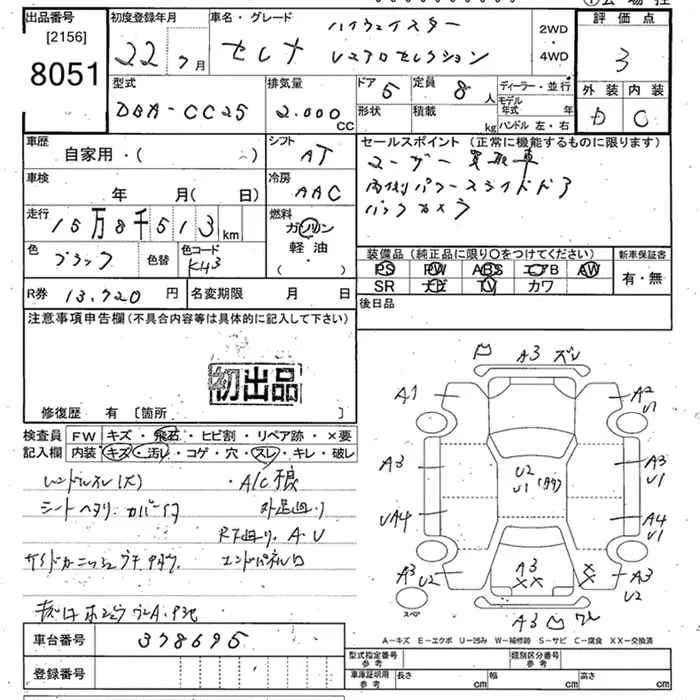 出品番号
[2156]
8051
初度登録年月
22 7月
車名・グレード
セレナ
ハイウェイスター
Vエアロセレクション
2WD
・
4WD
評価点
3
外装 内装
D C
型式
DBA-CC25
排気量
2.000 CC
ドア 5
定員 8人
形状
積載 kg
ディーラー・並行
モデル年式 年
ハンドル 左・右
車歴
自家用・( )
シフト
AT
車検
年 月( 日)
冷房
AAC
走行
15万8千513km
燃料
ガソリン
軽油
( ・ )
色
ブラック
色替
色コード
KH3
R券 13.720円
名変期限 月 日
セールスポイント (正常に機能するものに限ります)
ユーザー買取車
両側パワースライドドア
バックカメラ
装備品(純正品に限り〇をつけてください)
PS PW ABS エアB AW
SR ナビ TV カワ
新車保証書
有・無
後日品
注意事項申告欄(不具合内容等は具体的に記入して下さい)
初出品
修復歴 有 [箇所 ]
検査員記入欄
FW キズ・飛石・ヒビ割・リペア跡・×要
内装 キズ・汚レ・コゲ・穴・スレ・キレ・破レ
・A/C
シートヘタリ.
外足廻り
R下廻り A・U
エンドパネル
A3 ズレ
A1
A2
U1
A3
U2
U1
A3
U1
UA4
A4
U1
A3
U2
A3
XX
XX
A3
U2
スペア
A3
A-キズ E-エクボ U-凹み W-補修跡 S-サビ C-腐食 XX-交換済
車台番号
378695
登録番号
型式指定番号 参考
類別区分番号 参考
車庫証明用 参考
長さ cm
幅 cm
高さ cm